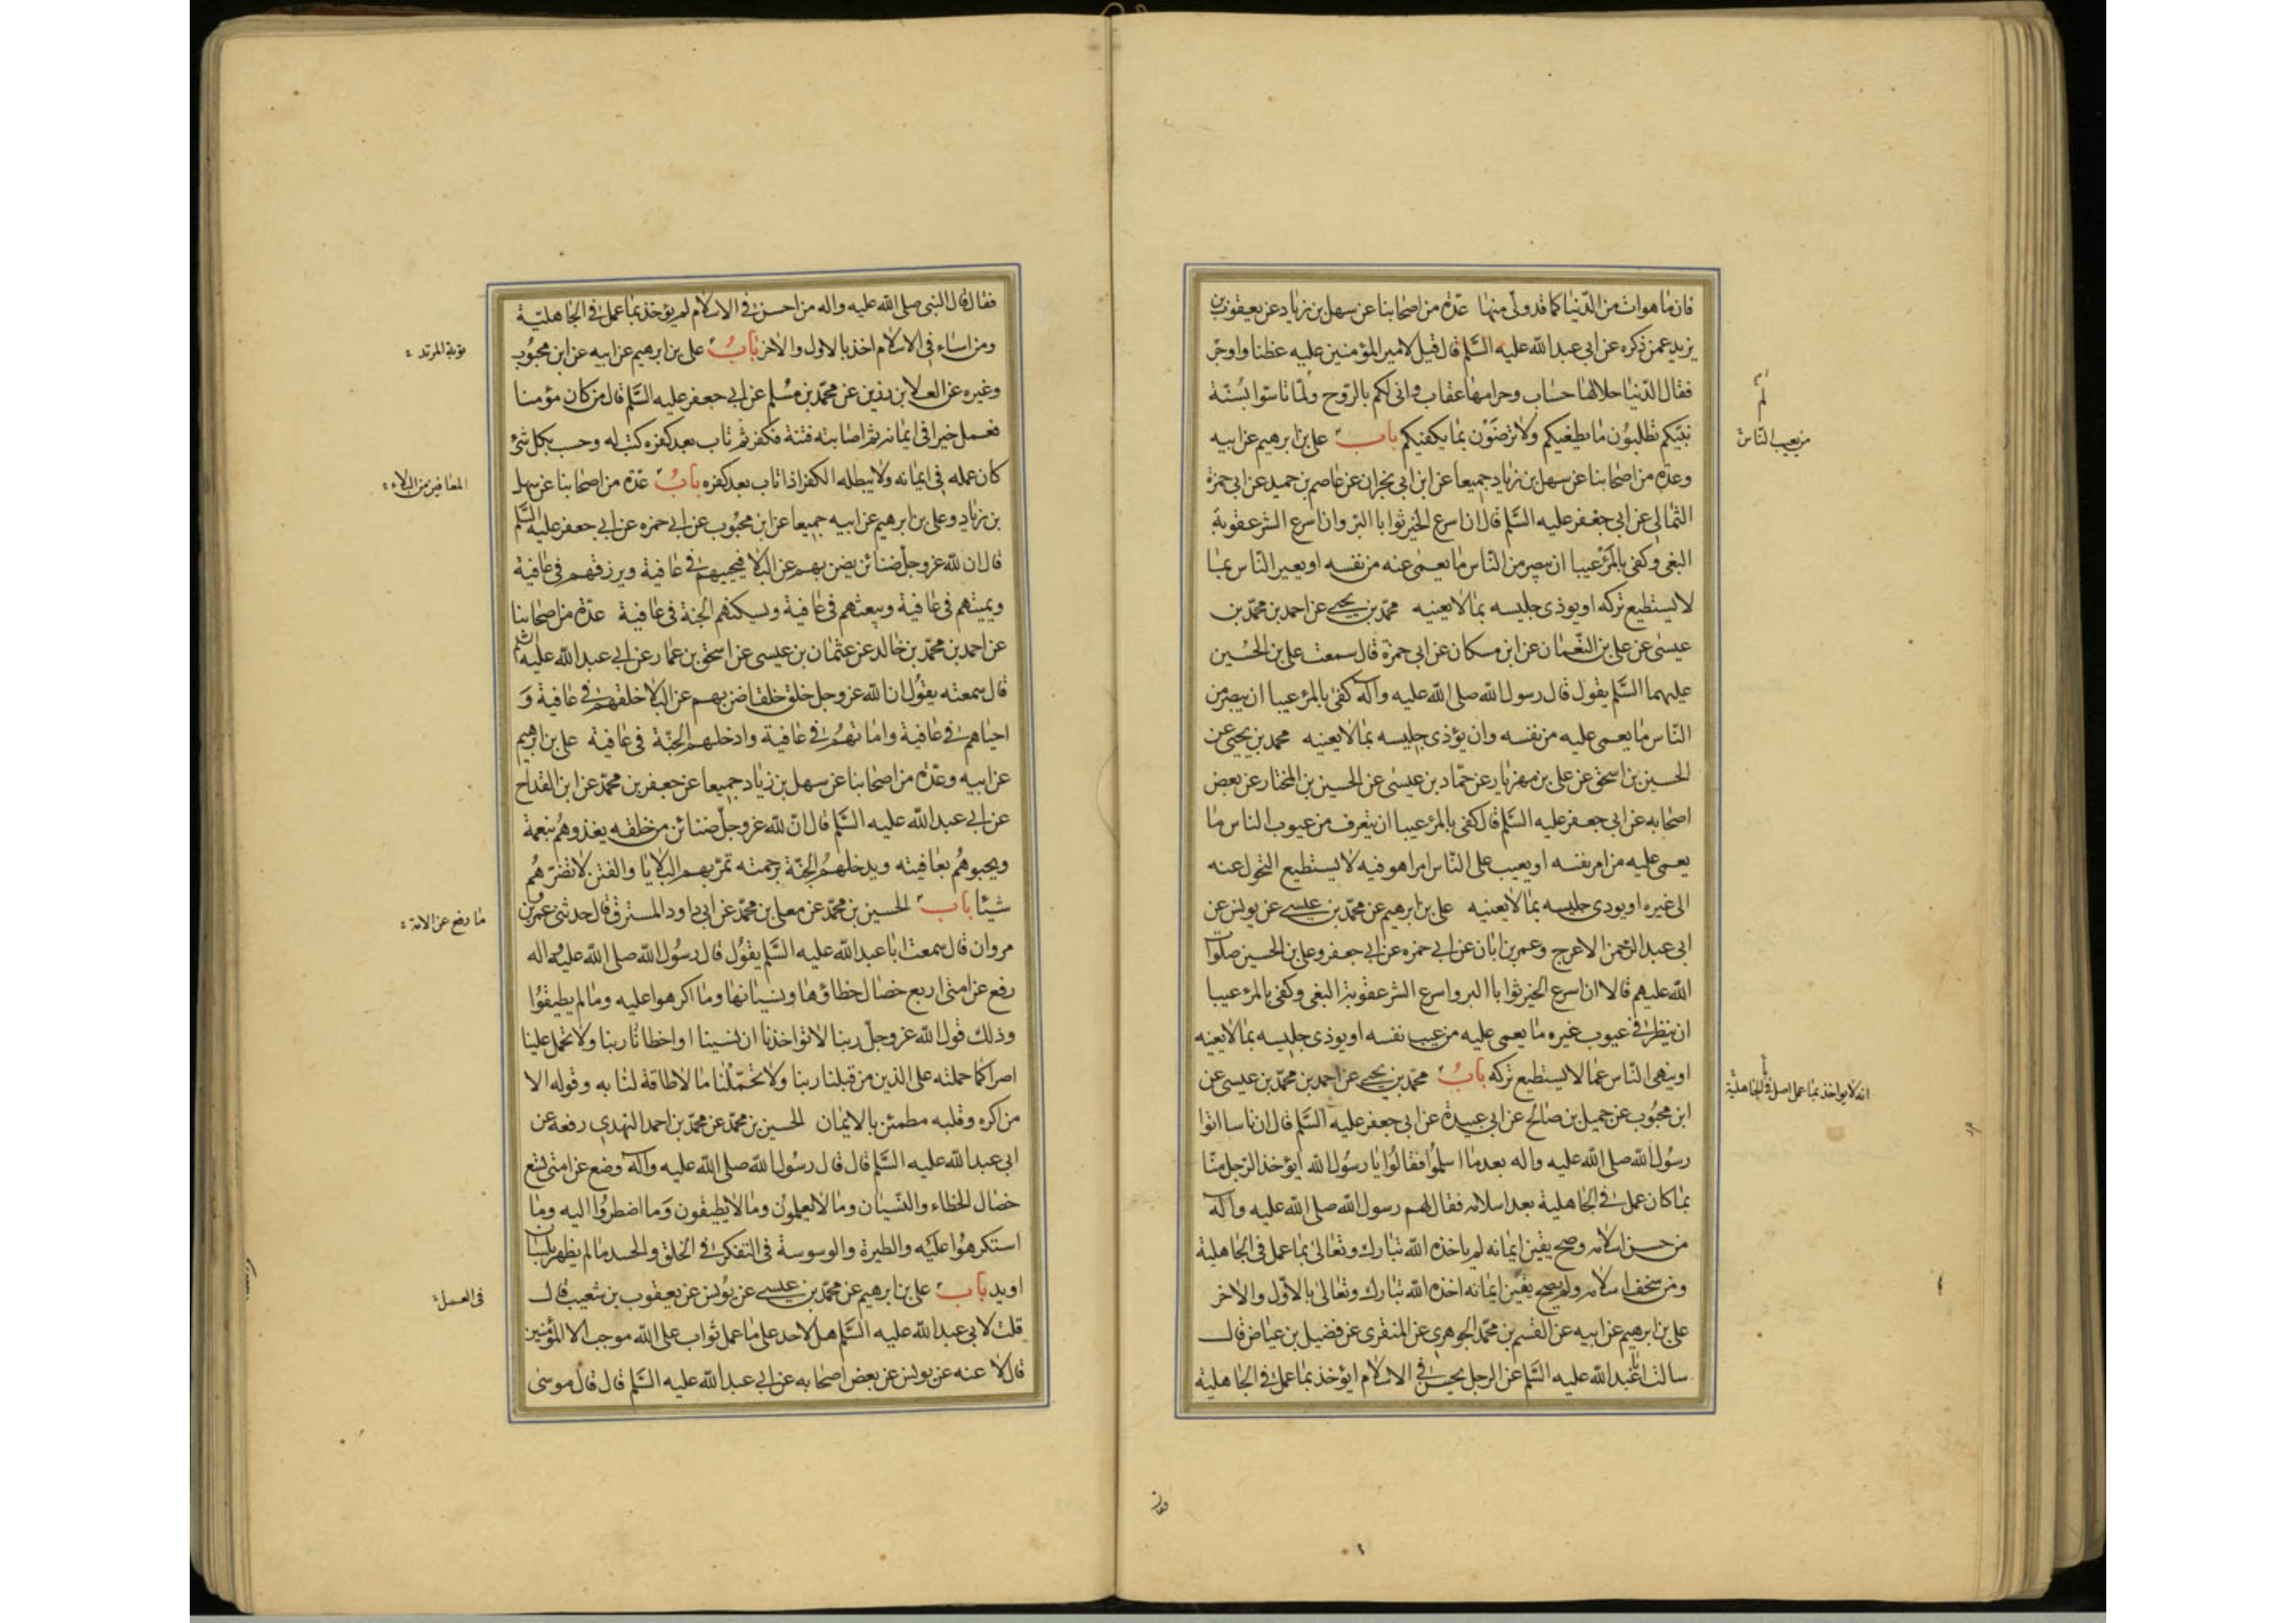 فان ما هوات من الدنيا كما قد ولى منها عدة من اصحابنا عن سهل بن زياد عن يعقوب بن
يزيد عمن ذكره عن ابي عبد الله عليه السلم قال قيل لامير المؤمنين عليه عظنا واوجز
فقال الدنيا حلالها حساب وحرامها عقاب وانى لكم بالروح ولما تاسوا بسنة
نبيكم تطلبون ما يطغيكم ولا ترضون بما يكفيكم باب على بن ابرهيم عن ابيه
وعدة من اصحابنا عن سهل بن زياد جميعا عن ابن ابى نجران عن عاصم بن حميد عن ابى حمزة
الثمالى عن ابى جعفر عليه السلم قال ان اسرع الخير ثوابا البر وان اسرع الشر عقوبة
البغى وكفى بالمرء عيبا ان يبصر من الناس ما يعمى عنه من نفسه او يعير الناس بما
لا يستطيع تركه او يوذى جليسه بما لا يعنيه محمد بن يحيى عن احمد بن محمد بن
عيسى عن على بن النعمان عن ابن مسكان عن ابى حمزة قال سمعت على بن الحسين
عليهما السلم يقول قال رسول الله صلى الله عليه وآله كفى بالمرء عيبا ان يبصر من
الناس ما يعمى عليه من نفسه وان يؤذى جليسه بما لا يعنيه محمد بن يحيى عن
الحسين بن اسحق عن على بن مهزيار عن حماد بن عيسى عن الحسين بن المختار عن بعض
اصحابه عن ابى جعفر عليه السلم قال كفى بالمرء عيبا ان يتعرف من عيوب الناس ما
يعمى عليه من امر نفسه او يعيب على الناس امرا هو فيه لا يستطيع التحول عنه
الى غيره او يوذى جليسه بما لا يعنيه على بن ابرهيم عن محمد بن عيسى عن يونس عن
ابى عبد الرحمن الاعرج وعمر بن ابان عن ابى حمزه عن ابى جعفر وعلى بن الحسين صلوات
الله عليهم قالا ان اسرع الخير ثوابا البر واسرع الشر عقوبة البغى وكفى بالمرء عيبا
ان ينظر فى عيوب غيره ما يعمى عليه من عيب نفسه او يوذى جليسه بما لا يعنيه
او ينهى الناس عما لا يستطيع تركه باب محمد بن يحيى عن احمد بن محمد بن عيسى عن
ابن محبوب عن جميل بن صالح عن ابى عبيدة عن ابى جعفر عليه السلم قال ان ناسا اتوا
رسول الله صلى الله عليه واله بعد ما اسلموا فقالوا يا رسول الله ايؤخذ الرجل منا
بما كان عمل فى الجاهلية بعد اسلامه فقال لهم رسول الله صلى الله عليه وآله
من حسن اسلامه وصح يقين ايمانه لم ياخذه الله تبارك وتعالى بما عمل فى الجاهلية
ومن سخف اسلامه ولم يصح يقين ايمانه اخذه الله تبارك وتعالى بالاول والاخر
على بن ابرهيم عن ابيه عن القسم بن محمد الجوهرى عن المنقرى عن فضيل بن عياض قال
سالت ابا عبد الله عليه السلم عن الرجل يحسن فى الاسلام ايؤخذ بما عمل فى الجاهلية
من يعيب الناس
انه لا يواخذ بما عمل اصل فى الجاهلية
فقال قال النبى صلى الله عليه واله من احسن فى الاسلام لم يؤخذ بما عمل فى الجاهلية
ومن اساء فى الاسلام اخذ بالاول والاخر باب على بن ابرهيم عن ابيه عن ابن محبوب
وغيره عن العلا بن رزين عن محمد بن مسلم عن ابى جعفر عليه السلم قال من كان مؤمنا
فعمل خيرا فى ايمانه ثم اصابته فتنة فكفر ثم تاب بعد كفره كتب له وحسب بكل شئ
كان عمله فى ايمانه ولا يبطله الكفر اذا تاب بعد كفره باب عدة من اصحابنا عن سهل
بن زياد وعلى بن ابرهيم عن ابيه جميعا عن ابن محبوب عن ابى حمزه عن ابى جعفر عليه السلم
قال ان لله عز وجل ضنائن يضن بهم عن البلا فيحييهم فى عافية ويرزقهم فى عافية
ويميتهم فى عافية ويبعثهم فى عافية ويسكنهم الجنة فى عافية عدة من اصحابنا
عن احمد بن محمد بن خالد عن عثمان بن عيسى عن اسحق بن عمار عن ابى عبد الله عليه السلم
قال سمعته يقول ان الله عز وجل خلق خلقا ضن بهم عن البلا خلقهم فى عافية و
احياهم فى عافية واماتهم فى عافية وادخلهم الجنة فى عافية على بن ابرهيم
عن ابيه وعدة من اصحابنا عن سهل بن زياد جميعا عن جعفر بن محمد عن ابن القداح
عن ابى عبد الله عليه السلم قال ان لله عز وجل ضنائن من خلقه يغذوهم بنعمة
ويحبوهم بعافيته ويدخلهم الجنة برحمته تمر بهم البلايا والفتن لا تضرهم
شيئا باب الحسين بن محمد عن معلى بن محمد عن ابى داود المسترق قال حدثنى عمرو بن
مروان قال سمعت ابا عبد الله عليه السلم يقول قال رسول الله صلى الله عليه واله
رفع عن امتى اربع خصال خطاؤها ونسيانها وما اكرهوا عليه وما لم يطيقوا
وذلك قول الله عز وجل ربنا لا تواخذنا ان نسينا او اخطانا ربنا ولا تحمل علينا
اصرا كما حملته على الذين من قبلنا ربنا ولا تحملنا ما لا طاقة لنا به وقوله الا
من اكره وقلبه مطمئن بالايمان الحسين بن محمد عن محمد بن احمد النهدى رفعه عن
ابى عبد الله عليه السلم قال قال رسول الله صلى الله عليه وآله وضع عن امتى تسع
خصال الخطاء والنسيان وما لا يعلمون وما لا يطيقون وما اضطروا اليه وما
استكرهوا عليه والطيرة والوسوسة فى التفكر فى الخلق والحسد ما لم يظهر بلسان
او يد باب على بن ابرهيم عن محمد بن عيسى عن يونس عن يعقوب بن شعيب قال
قلت لابى عبد الله عليه السلم هل لاحد على ما عمل ثواب على الله موجب الا المؤمنين
قال لا عنه عن يونس عن بعض اصحابه عن ابى عبد الله عليه السلم قال قال موسى
توبة المرتد
المعافين من البلاء
ما رفع عن الامة
فى العمل